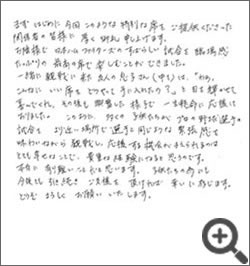 まずはじめに今回このような特別な席をご提供くださった
関係者の皆様に厚く御礼申し上げます。
お陰様で日本ハムファイターズのすばらしい試合を臨場感
たっぷりの最高の席で楽しむことができました。
一緒に観戦に来た友人の息子さん(中1)は、「わぁ、
こんなにいい席どうやって手に入れたの？」と目を輝かせて
喜んでくれ、その後も興奮した様子で一生懸命に応援して
おりました。このように、多くの子供たちがプロの野球選手の
試合をより近い場所で選手と同じような緊張感を
味わいながら観戦し、応援する機会が与えられるのは
とても幸せなことで、貴重な体験になると思うのです。
本当に有り難いことだと思います。子供たちの為にも
今後とも引き続きご支援を頂ければ幸いに存じます。
どうぞよろしくお願いいたします。